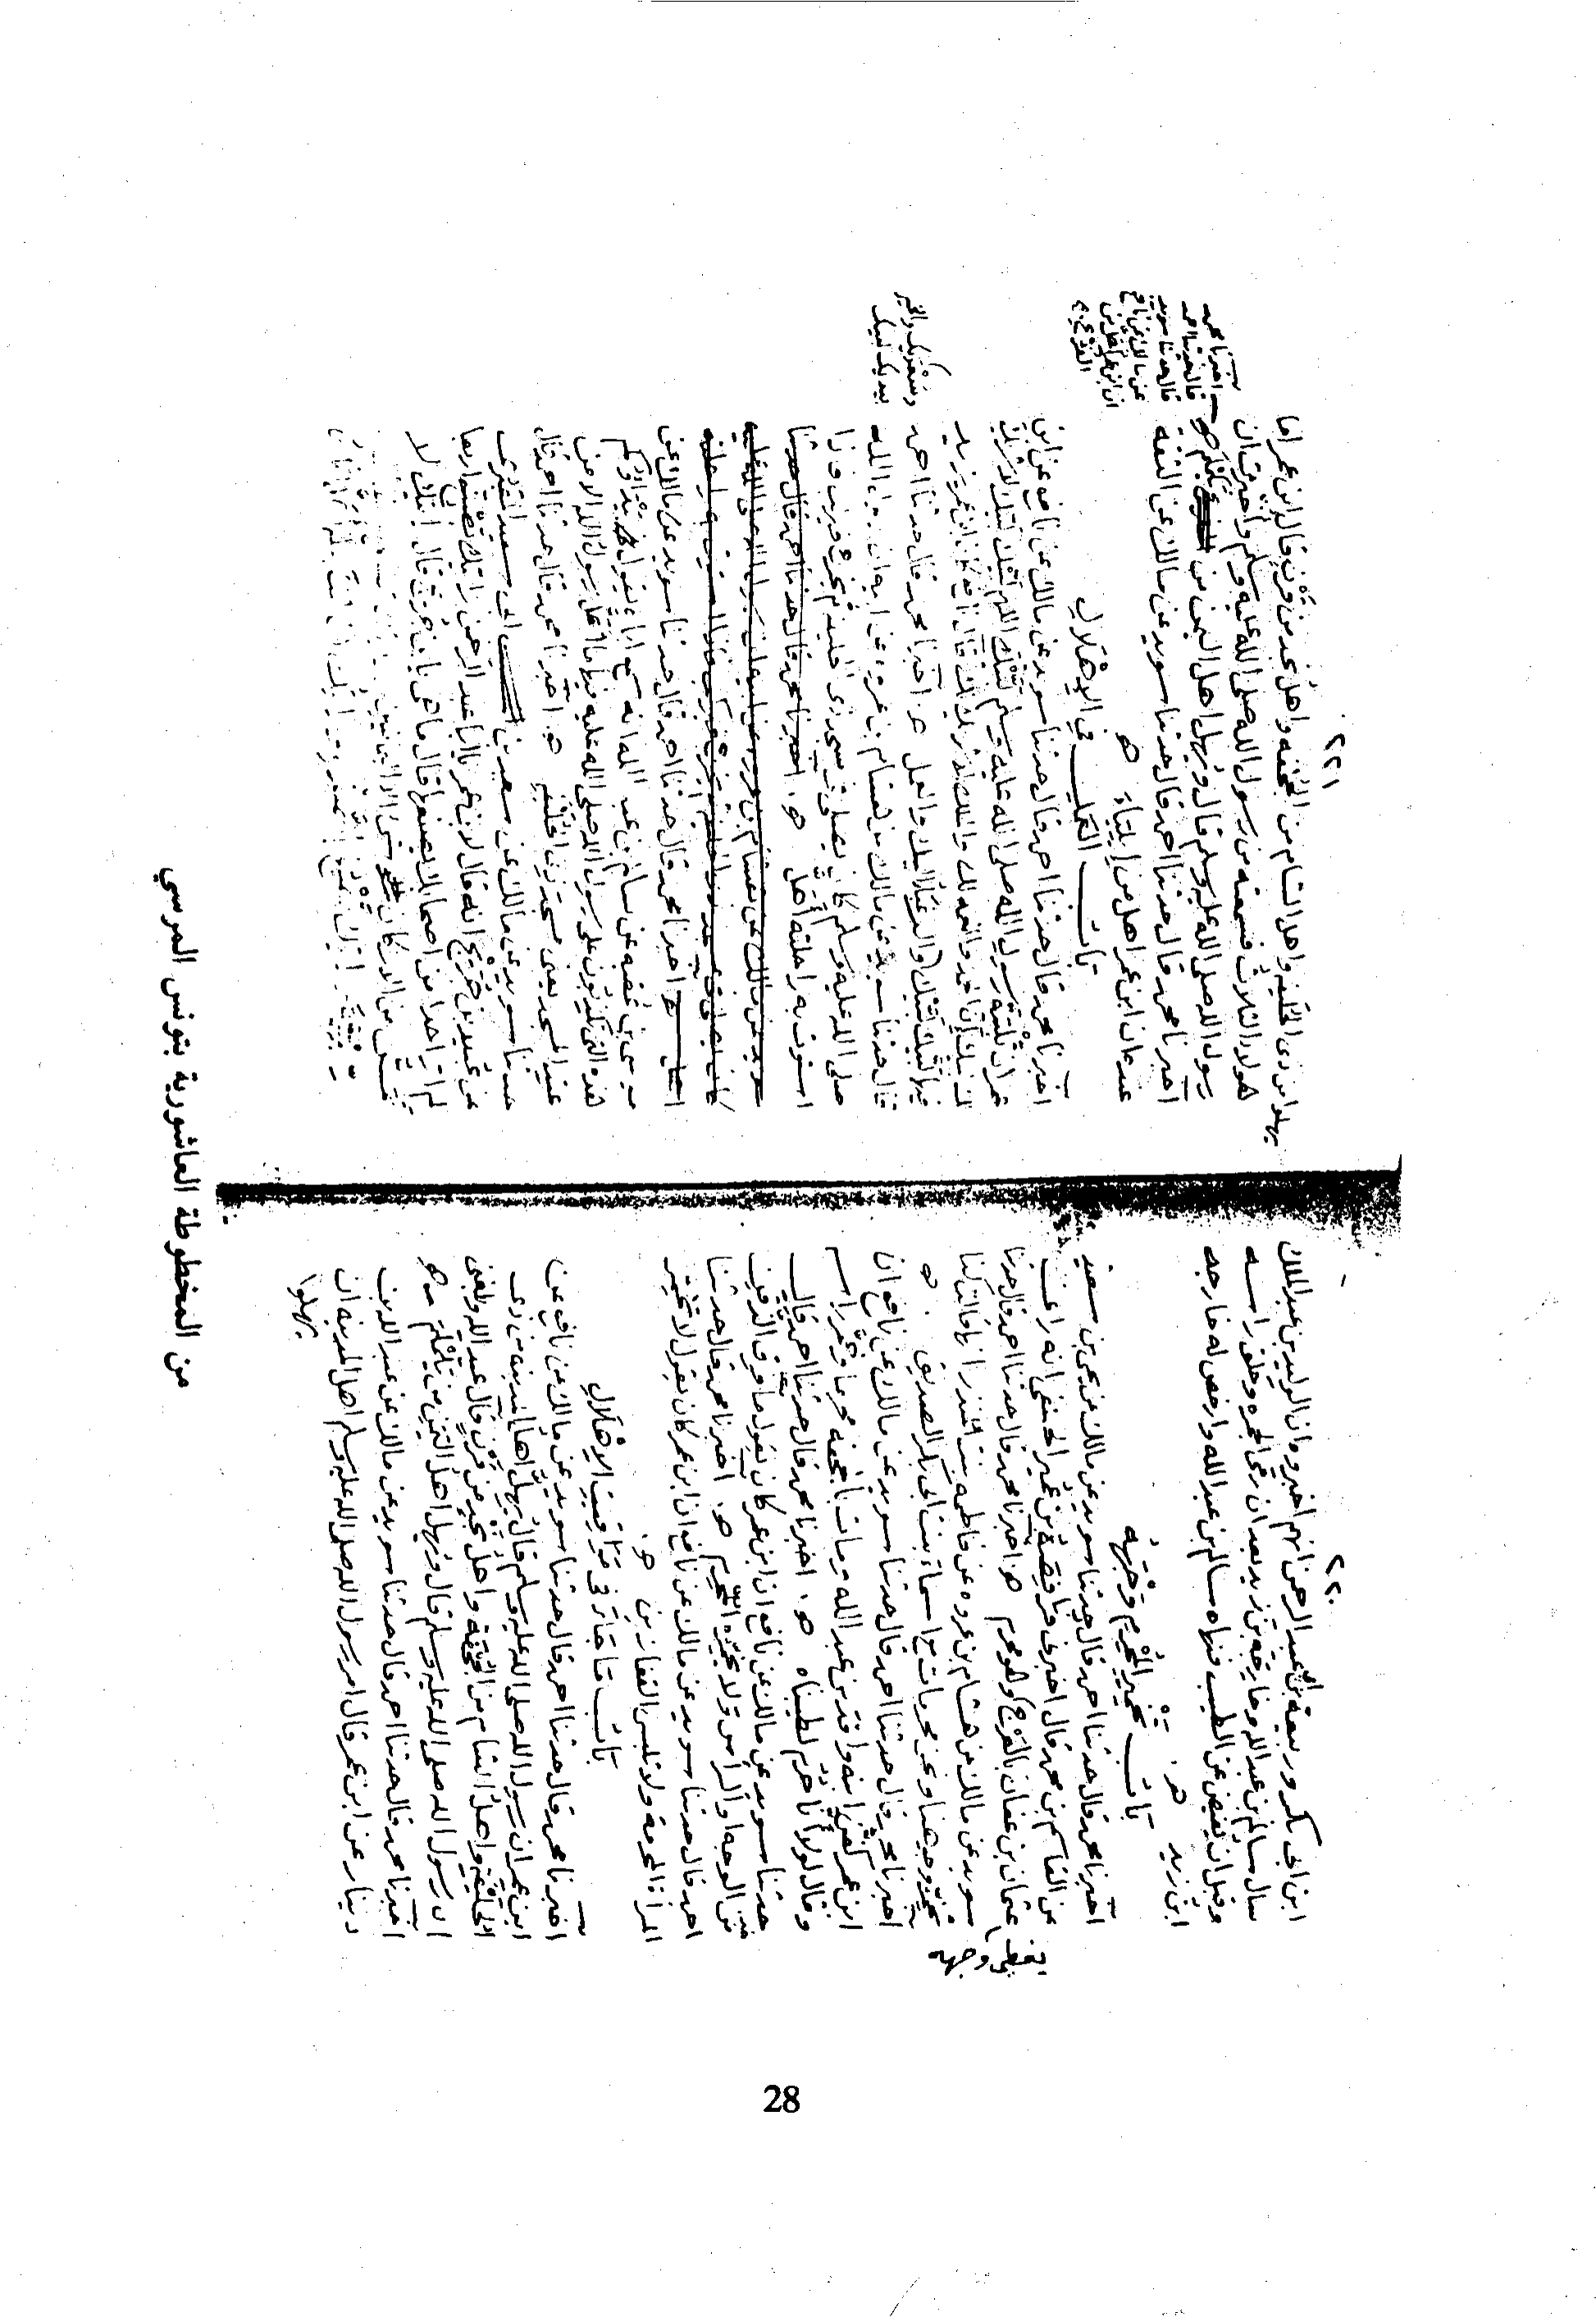 ٢٢٠
ابن ابي بكر وربيعة بن ابي عبد الرحمن انهم اخبروه ان الوليد بن عبد الملك
سال سالم بن عبد الله وخارجة بن زيد بعد ان رمى الجمره وحلق راسه
وقبل ان يفيض عن الطيب فنهاه سالم بن عبد الله وارخص له خارجه
ابن زيد
باب تخمير المحرم وجهه
اخبرنا محمد قال حدثنا احمد قال حدثنا سويد عن مالك عن يحيى بن سعيد
عن القاسم بن محمد قال اخبرني فرافصة بن عمير الحنفي انه راى
عثمان بن عفان بالعرج وهو محرم اخبرنا محمد قال حدثنا احمد قال حدثنا
يغطي وجهه
سويد عن مالك عن هشام بن عروه عن فاطمه بنت المنذر انها قالت كنا
نخمر وجوهنا ونحن محرمات مع اسماء بنت ابي بكر الصديق
اخبرنا محمد قال حدثنا احمد قال حدثنا سويد عن مالك عن نافع ان
ابن عمر كفن ابنه واقد بن عبد الله ومات بالجحفه محرما وخمر راسه
وقال لولا انا حرم لطيبناه اخبرنا محمد قال حدثنا احمد قال
حدثنا سويد عن مالك عن نافع ان ابن عمر كان يقول ما فوق الذقن
من الوجه والراس ولا يخمره المحرم اخبرنا محمد قال حدثنا
احمد قال حدثنا سويد عن مالك عن نافع ان ابن عمر كان يقول لا تنتقب
المراة المحرمة ولا تلبس القفازين
باب ما جاء في مواقيت الاهلال
اخبرنا محمد قال حدثنا احمد قال حدثنا سويد عن مالك عن نافع عن
ابن عمر ان رسول الله صلى الله عليه وسلم قال يهل اهل المدينه من ذي
الحليفه واهل الشام من الجحفة واهل نجد من قرن قال عبد الله وبلغني
ان رسول الله صلى الله عليه وسلم قال ويهل اهل اليمن من يلملم
اخبرنا محمد قال حدثنا احمد قال حدثنا سويد عن مالك عن عبد الله بن
دينار عن ابن عمر قال امر رسول الله صلى الله عليه وسلم اهل المدينه ان
يهلوا
٢٢١
يهلوا من ذي الحليفه واهل الشام من الجحفه واهل نجد من قرن قال ابن عمر اما
هولاء الثلاث فسمعته من رسول الله صلى الله عليه وسلم واخبرت ان
رسول الله صلى الله عليه وسلم قال ويهل اهل اليمن من يلملم
اخبرنا محمد
قال حدثنا احمد
قال حدثنا سويد
عن مالك عن نافع
ان ابن عمر اهل من
الفرع
اخبرنا محمد قال حدثنا احمد قال حدثنا سويد عن مالك عن الثقة
عنده ان ابن عمر اهل من ايلياء
باب العمل في الاهلال
اخبرنا محمد قال حدثنا احمد قال حدثنا سويد عن مالك عن نافع عن ابن
عمر ان تلبية رسول الله صلى الله عليه وسلم لبيك اللهم لبيك لبيك لا شريك
لك لبيك ان الحمد والنعمه لك والملك لا شريك لك قال نافع وكان ابن عمر يزيد
فيها لبيك لبيك والرغباء اليك والعمل اخبرنا محمد قال حدثنا احمد
وسعديك والخير
بيديك لبيك
قال حدثنا سويد عن مالك عن هشام بن عروه عن ابيه ان رسول الله
صلى الله عليه وسلم كان يصلي في مسجد ذي الحليفه ركعتين فاذا
استوت به راحلته اهل
اخبرنا محمد قال حدثنا احمد قال حدثنا سويد عن مالك عن
موسى بن عقبه عن سالم بن عبد الله انه سمع اباه يقول بيداوكم
هذه التي تكذبون على رسول الله صلى الله عليه فيها ما اهل رسول الله الا من
عند المسجد يعني مسجد ذي الحليفه اخبرنا محمد قال حدثنا احمد قال
حدثنا سويد عن مالك عن سعيد بن ابي سعيد المقبري
عن عبيد بن جريج انه قال لابن عمر يا ابا عبد الرحمن رايتك تصنع اربعا
لم ار احدا من اصحابك يصنعها قال ما هي يا ابن جريج قال رايتك لا
تمس من الاركان الا اليمانيين
من المخطوطة العاشورية بتونس المرسي
28